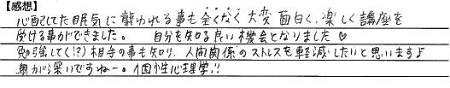 【感想】
心配してた眠気に襲われる事も全くなく大変面白く、楽しく講座を
受ける事ができました。 自分を知る良い機会となりました♡
勉強して(!?)相手の事も知り、人間関係のストレスを軽減したいと思います♪
奥が深いですねー。個性心理学!!